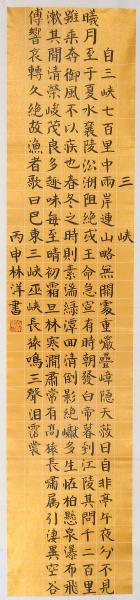 三峽
自三峽七百里中兩岸連山略無闕處重巖疊嶂隱天蔽日自非亭午夜分不見
曦月至于夏水襄陵沿溯阻絕或王命急宣有時朝發白帝暮到江陵其間千二百里
雖乘奔御風不以疾也春冬之時則素湍綠潭回清倒影絕巘多生怪柏懸泉瀑布飛
漱其間清榮峻茂良多趣味每至晴初霜旦林寒澗肅常有高猿長嘯屬引淒異空谷
傳響哀轉久絕故漁者歌曰巴東三峽巫峽長猿鳴三聲淚霑裳
丙申林洋書